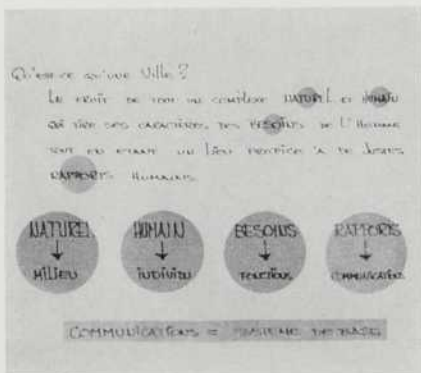 Qu'est-ce qu'une Ville ?
Le fruit de tout un complexe NATUREL et HUMAIN
qui tire ses caractères des BESOINS de l'Homme
tout en étant un lieu propice à de justes
RAPPORTS Humains
NATUREL HUMAIN BESOINS RAPPORTS
↓ ↓ ↓ ↓
MILIEU INDIVIDU FONCTIONS COMMUNICATIONS
COMMUNICATIONS = SYSTEME DE BASE